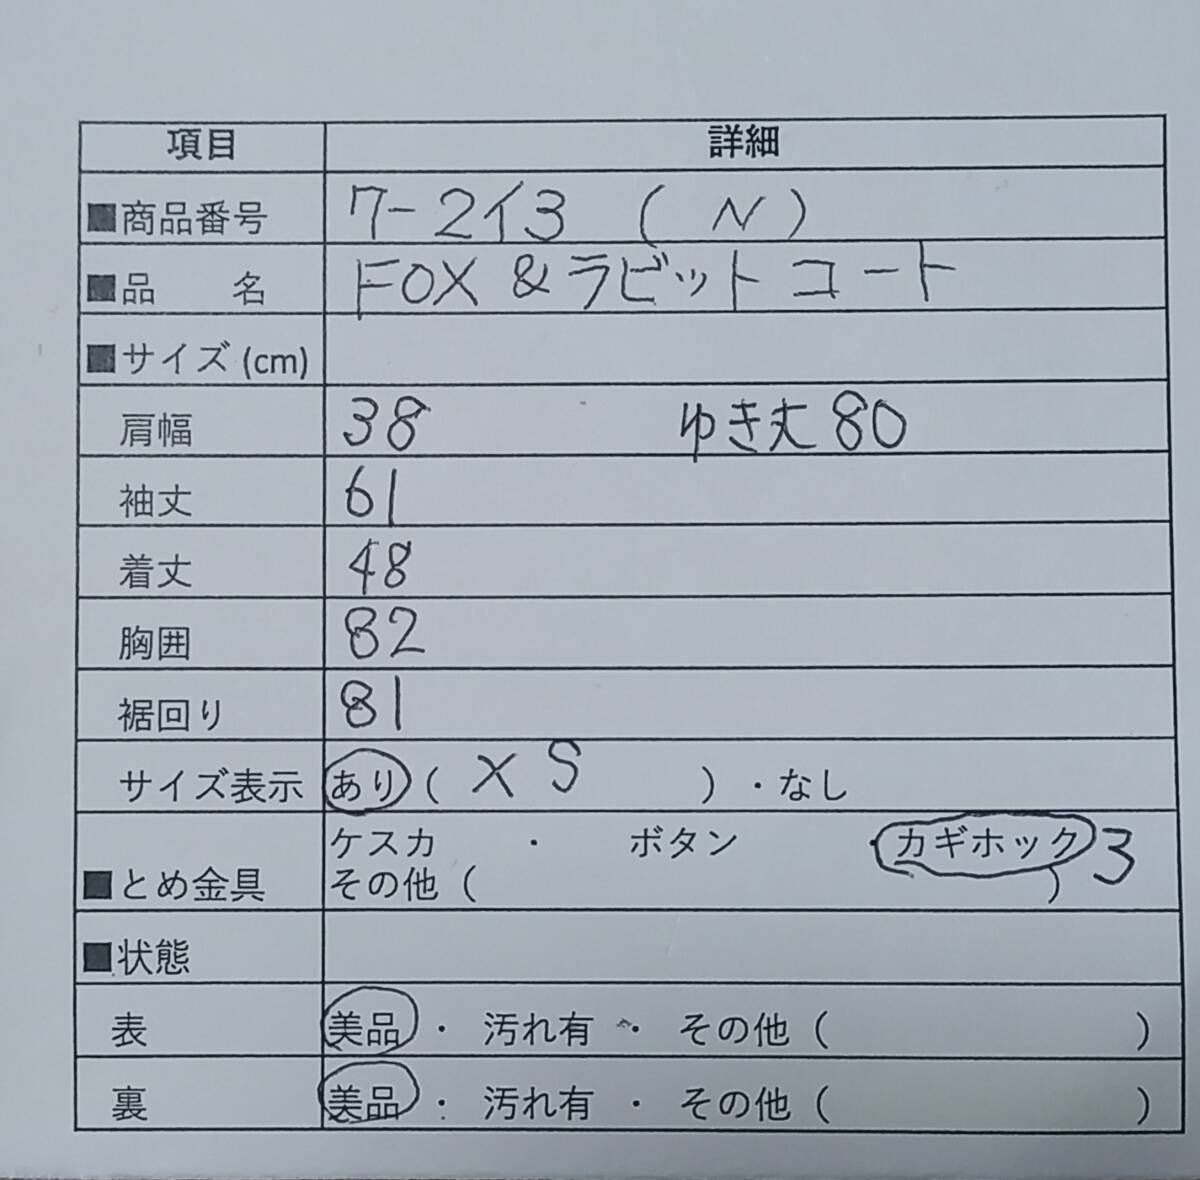 項目 詳細
■商品番号 7-2イ3 (N)
■品　名 FOX&ラビットコート
■サイズ(cm)
肩幅 38 ゆき丈80
袖丈 61
着丈 48
胸囲 82
裾回り 81
サイズ表示 あり( XS )・なし
ケスカ ・ ボタン ・カギホック 3
■とめ金具 その他( )
■状態
表 美品・ 汚れ有 ・ その他( )
裏 美品・ 汚れ有 ・ その他( )